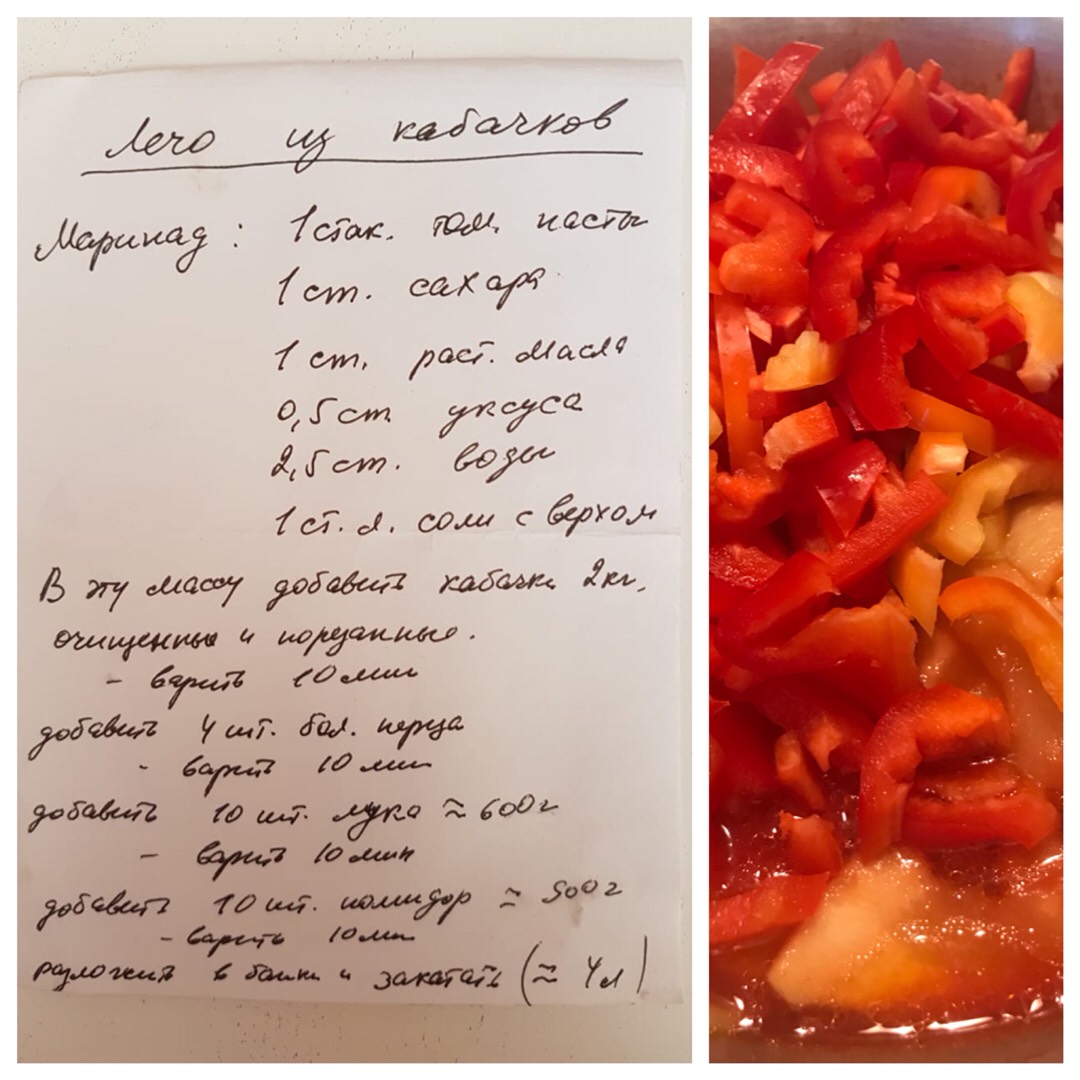 Лечо из кабачков
Маринад: 1 стак. том. пасты
1 ст. сахара
1 ст. раст. масла
0,5 ст уксуса
2,5 ст. воды
1 ст. л. соли с верхом
В эту массу добавить кабачки 2 кг.
очищенные и порезанные.
- варить 10 мин
добавить 4 шт. бол. перца
- варить 10 мин
добавить 10 шт. лука ≈ 600 г
- варить 10 мин
добавить 10 шт. помидор ≈ 500 г
- варить 10 мин
разложить в банки и закатать (≈ 4 л)